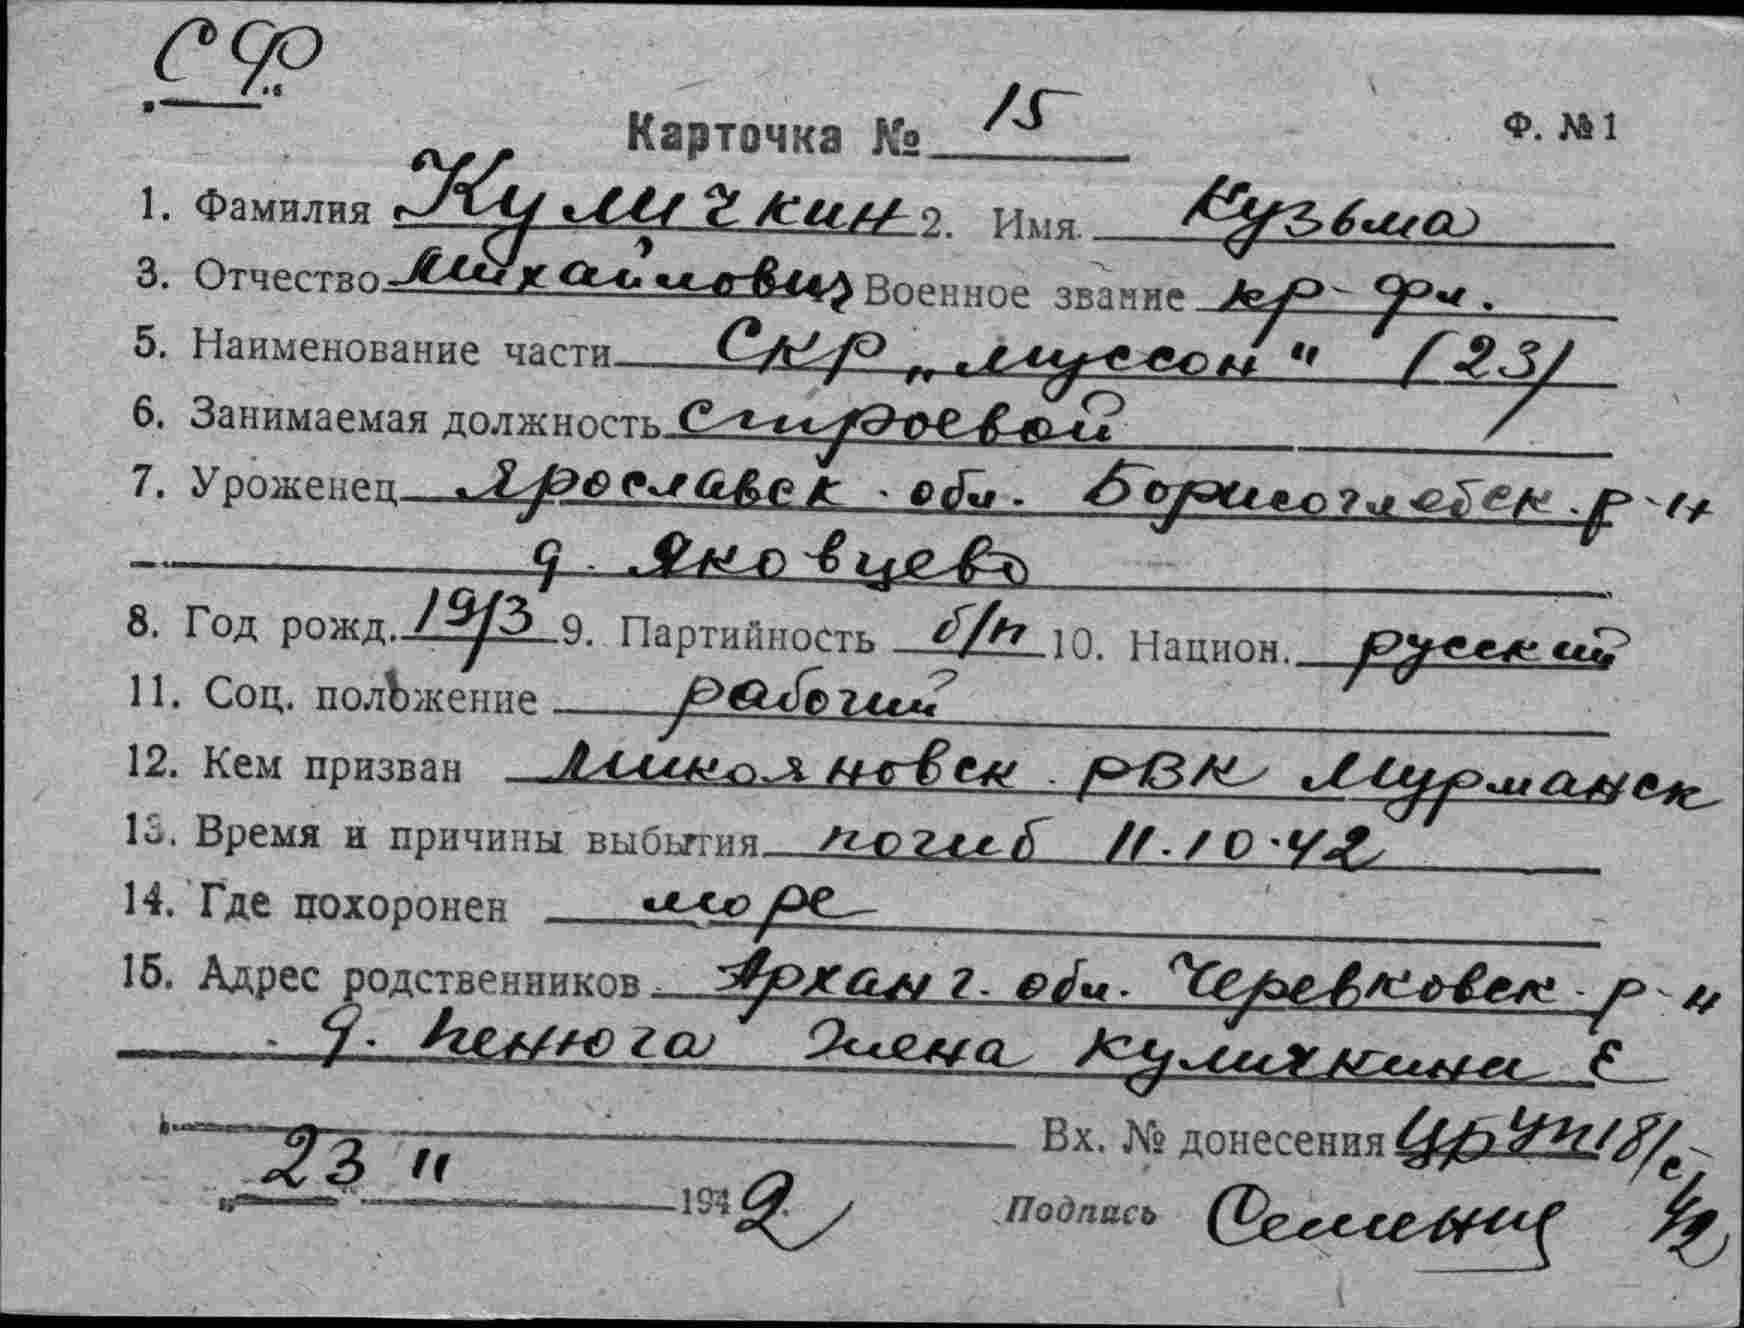 СФ
Карточка № 15 Ф. № 1
1. Фамилия Куличкин 2. Имя Кузьма
3. Отчество Михайлович Военное звание кр-фл.
5. Наименование части СКР „Муссон" (23)
6. Занимаемая должность строевой
7. Уроженец Ярославск. обл. Борисоглебск. р-н
д. Яковцево
8. Год рожд. 1913 9. Партийность б/п 10. Национ. русский
11. Соц. положение рабочий
12. Кем призван Микояновск. РВК Мурманск
13. Время и причины выбытия погиб 11.10.42
14. Где похоронен море
15. Адрес родственников Арханг. обл. Черевковск. р-н
д. Пенюга жена Куличкина Е
Вх. № донесения
23 " 1942
Подпись